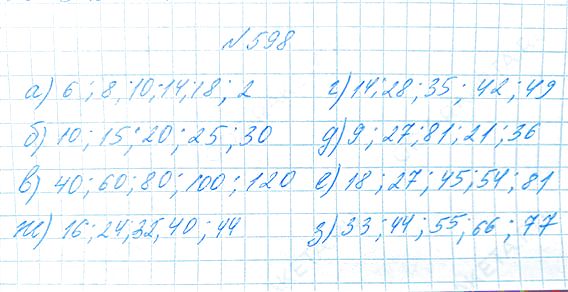 №598
а) 6; 8; 10; 14; 18; 2 г) 14; 28; 35; 42; 49
б) 10; 15; 20; 25; 30 д) 9; 27; 81; 21; 36
в) 40; 60; 80; 100; 120 е) 18; 27; 45; 54; 81
ж) 16; 24; 32, 40; 44 з) 33; 44; 55; 66; 77